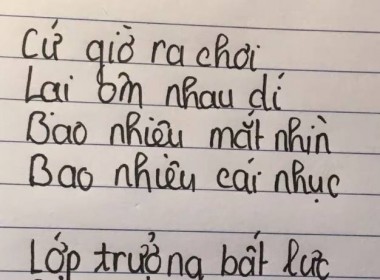 Cứ giờ ra chơi
Lai ôm nhau dí
Bao nhiêu mắt nhìn
Bao nhiêu cái nhục
Lớp trưởng bất lực